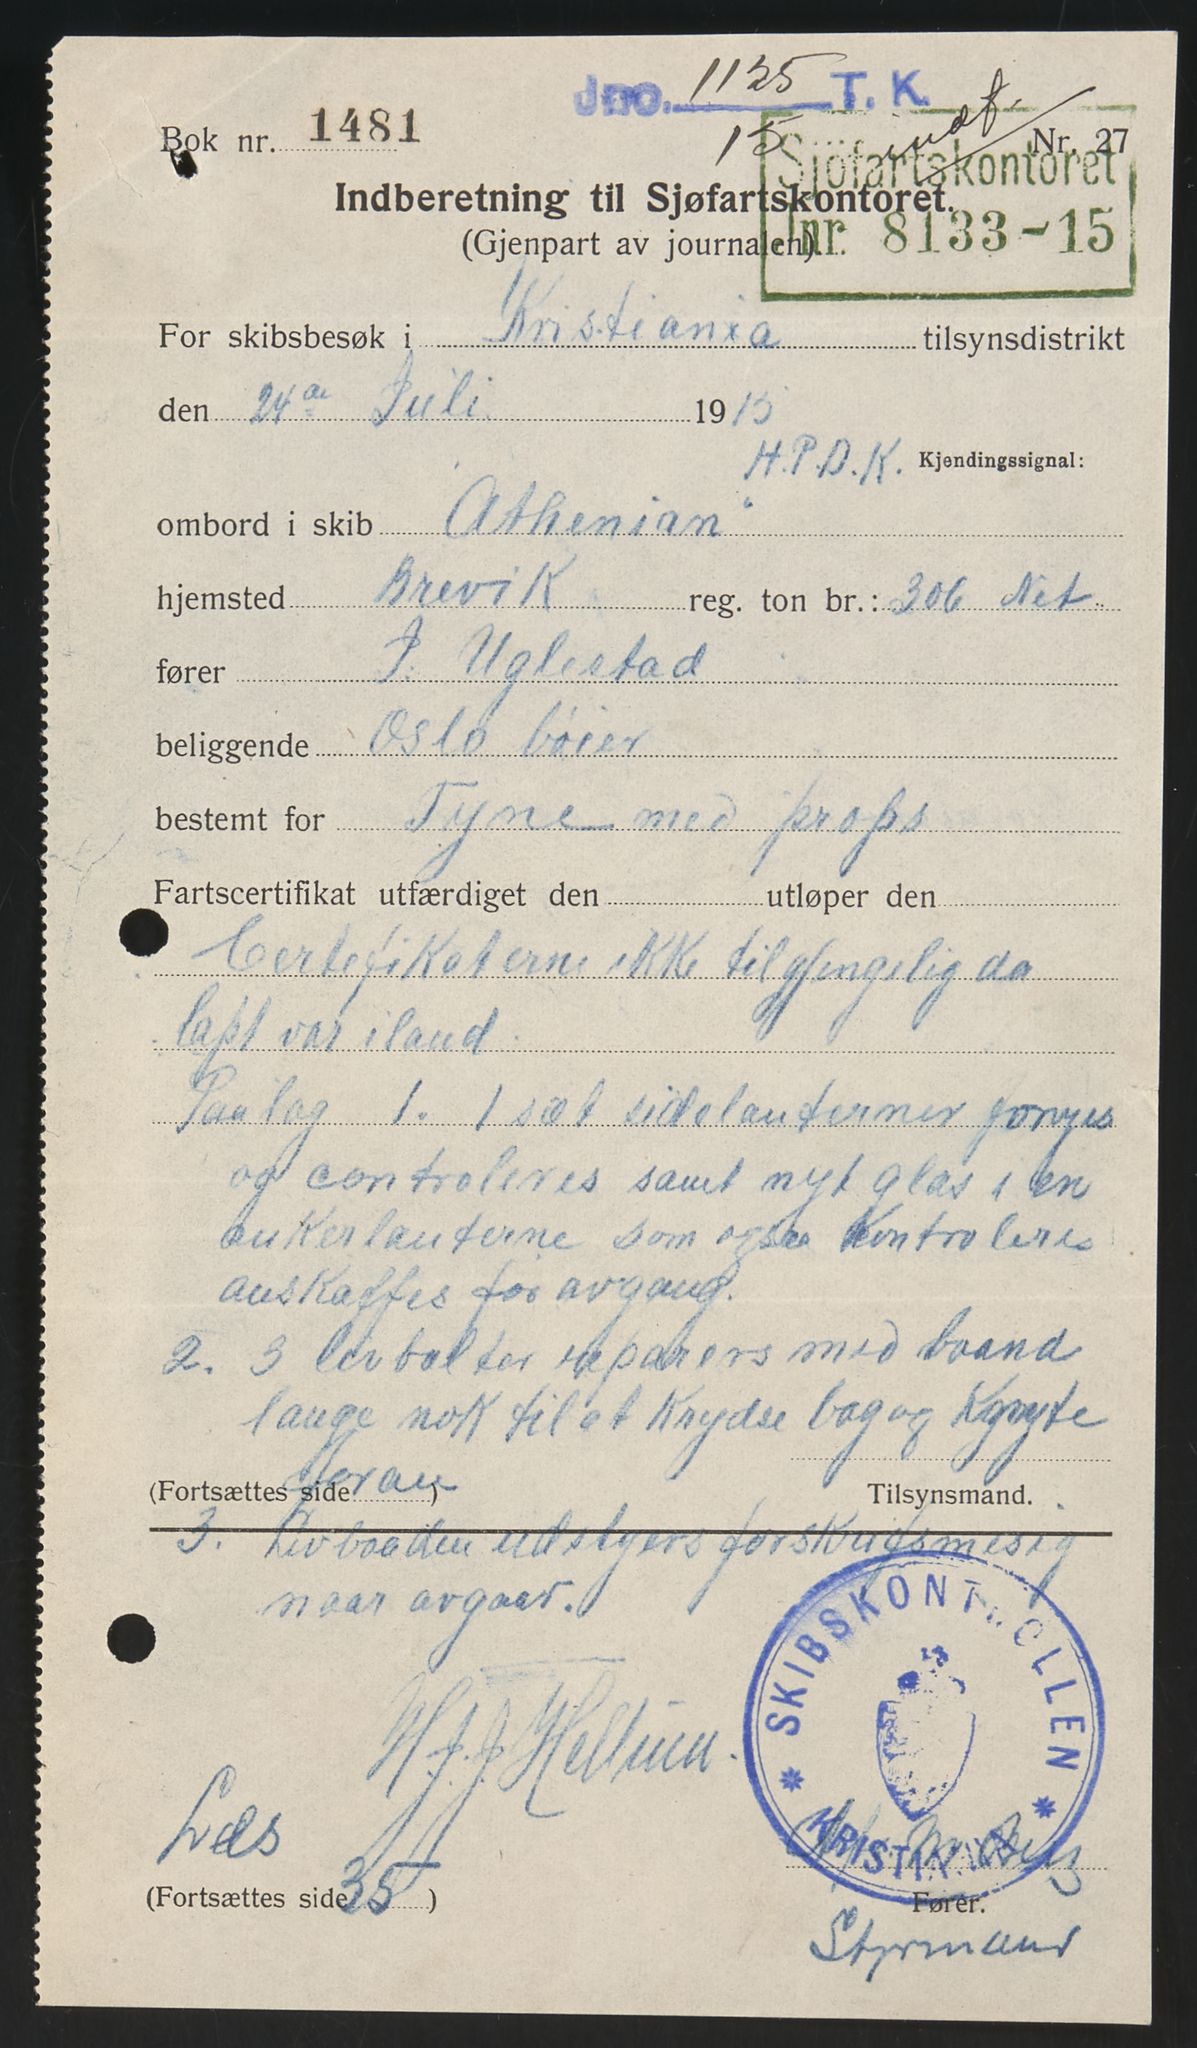 Jno. 1125 T. K.
15
Bok nr. 1481
Nr. 27
Sjöfartskontoret
Jnr. 8133-15
Indberetning til Sjøfartskontoret.
(Gjenpart av journalen)
For skibsbesøk i Kristiania tilsynsdistrikt
den 24de Juli 1915
H.P.D.K. Kjendingssignal:
ombord i skib "Athenian"
hjemsted Brevik reg. ton br.: 306 Net.
fører P. Uglestad
beliggende Oslo bøier
bestemt for Tyne med props
Fartscertifikat utfærdiget den utløper den
Certefikaterne ikke tilgjengelig da
Capt var iland.
Paalag 1. 1 sæt sidelanterner fornyes
og controleres samt nyt glas i en
ankerlanterne som ogsaa kontroleres
anskaffes før avgang.
2. 3 livbelter repareres med baand
lange nok til at krydse bag og knyte
foran
(Fortsættes side )
Tilsynsmand.
3. Livbaaden udstyers forskriftsmesig
naar avgaar.
H. J. J. Hellum.
SKIBSKONTROLLEN
KRISTIANIA
Læs
(Fortsættes side 35 )
Fører.
Styrmand